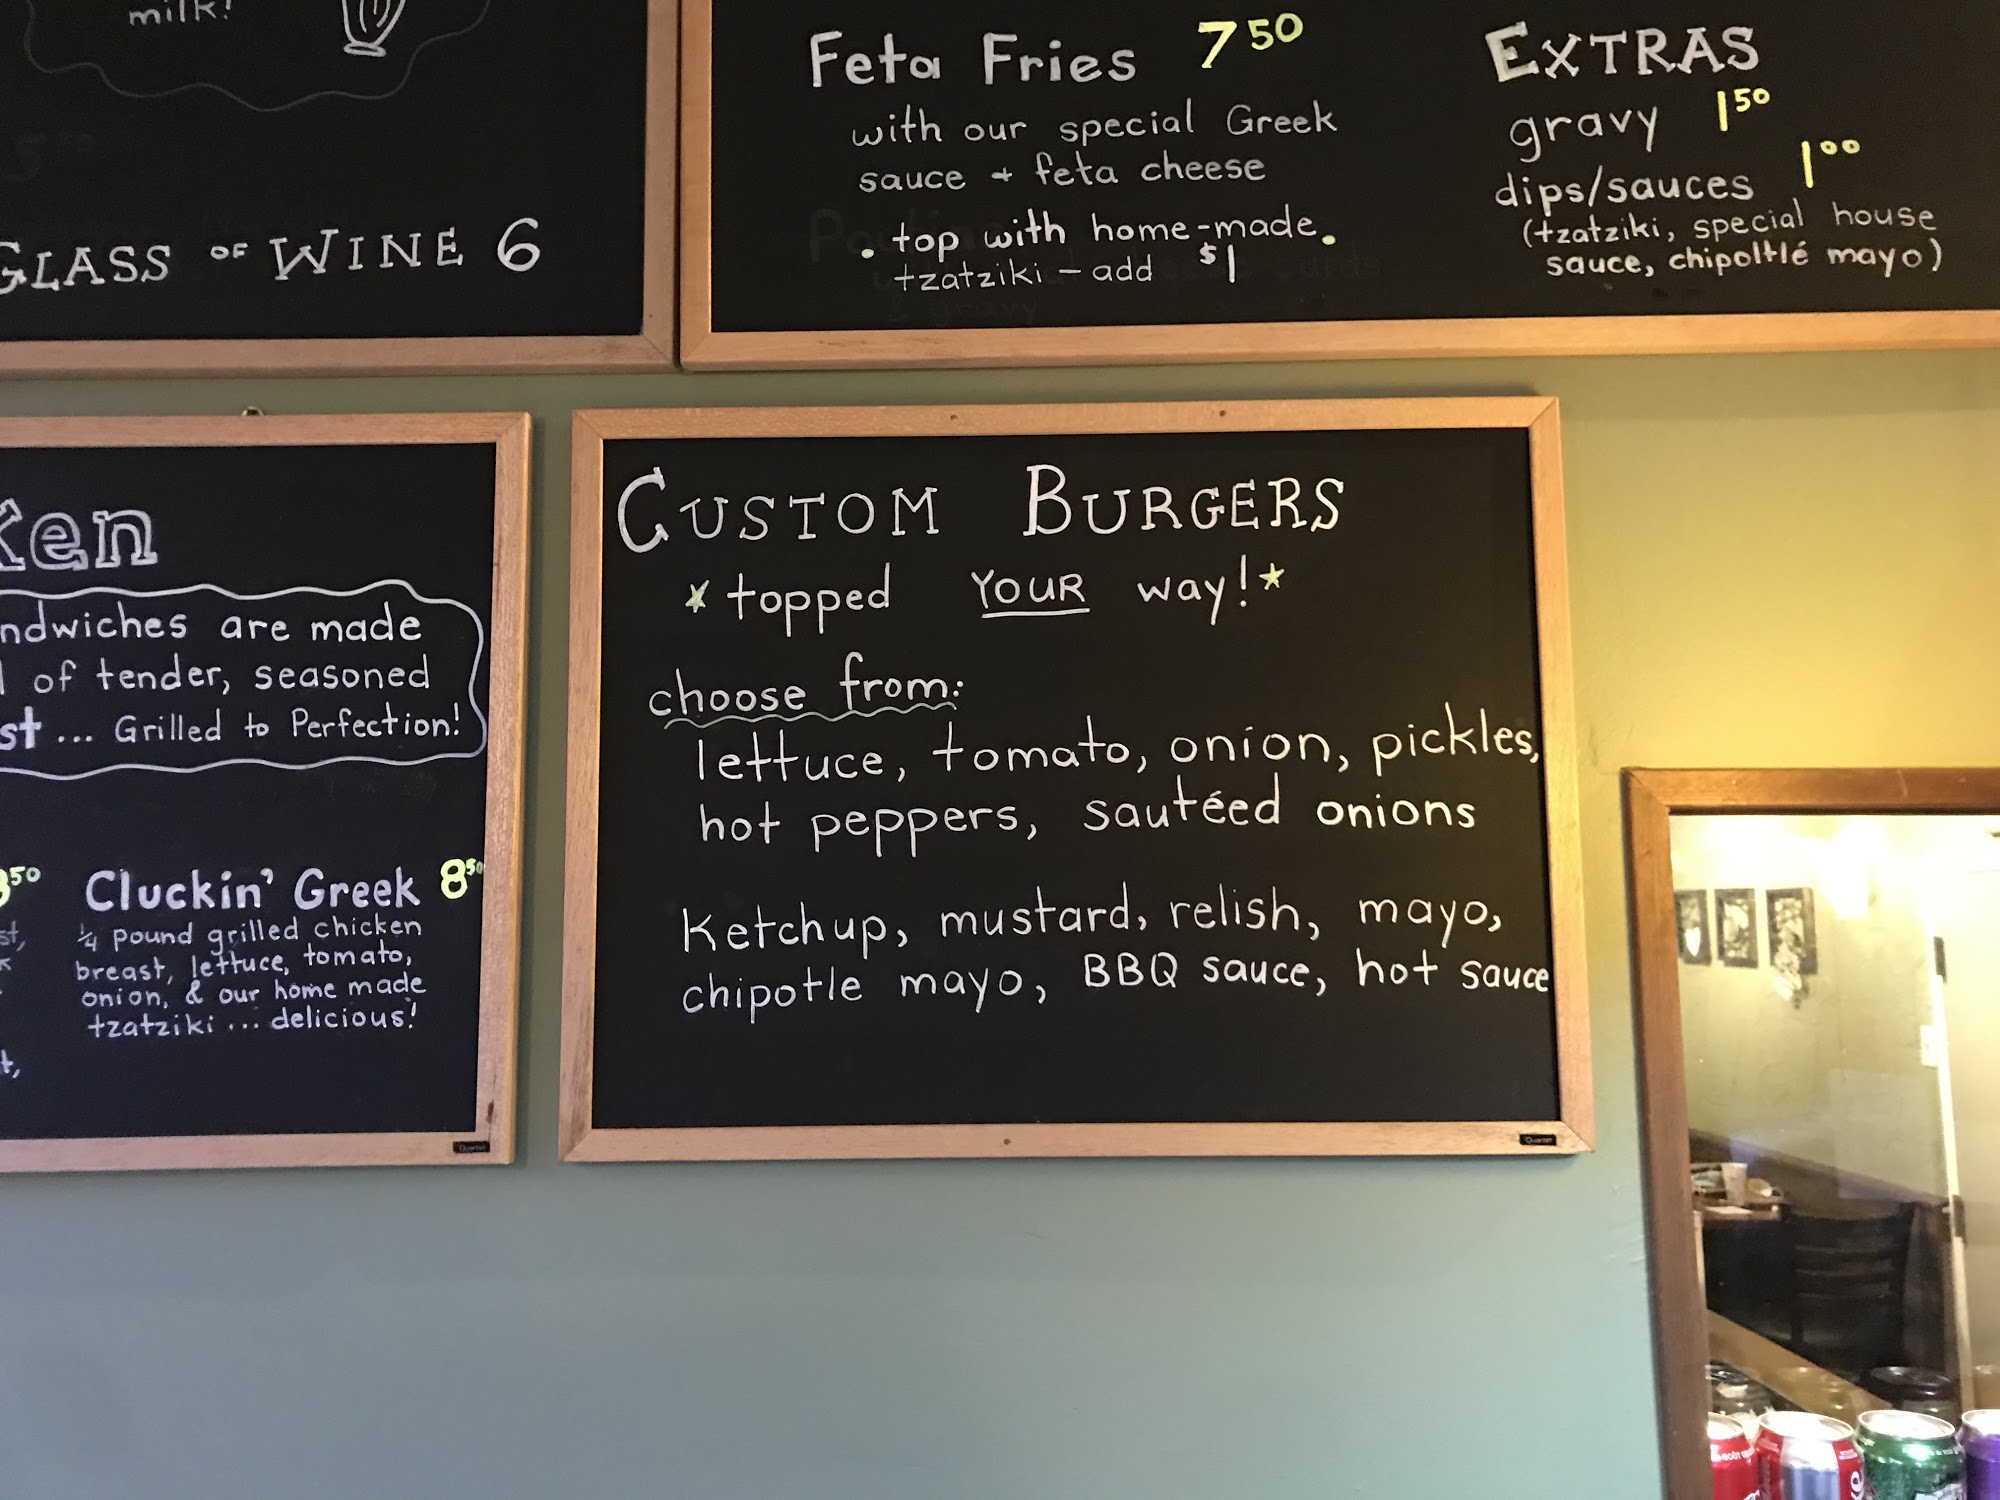 milk!
GLASS OF WINE 6
Feta Fries 7 50
with our special Greek
sauce + feta cheese
• top with home-made •
tzatziki - add $1
EXTRAS
gravy 1 50
dips/sauces 1 00
(tzatziki, special house
sauce, chipoltlé mayo)
ken
ndwiches are made
of tender, seasoned
st ... Grilled to Perfection!
50
Cluckin' Greek 8 50
1/4 pound grilled chicken
breast, lettuce, tomato,
onion, & our home made
tzatziki ... delicious!
CUSTOM BURGERS
* topped YOUR way! *
choose from:
lettuce, tomato, onion, pickles,
hot peppers, sautéed onions
Ketchup, mustard, relish, mayo,
chipotle mayo, BBQ sauce, hot sauce
Quartet
Quartet